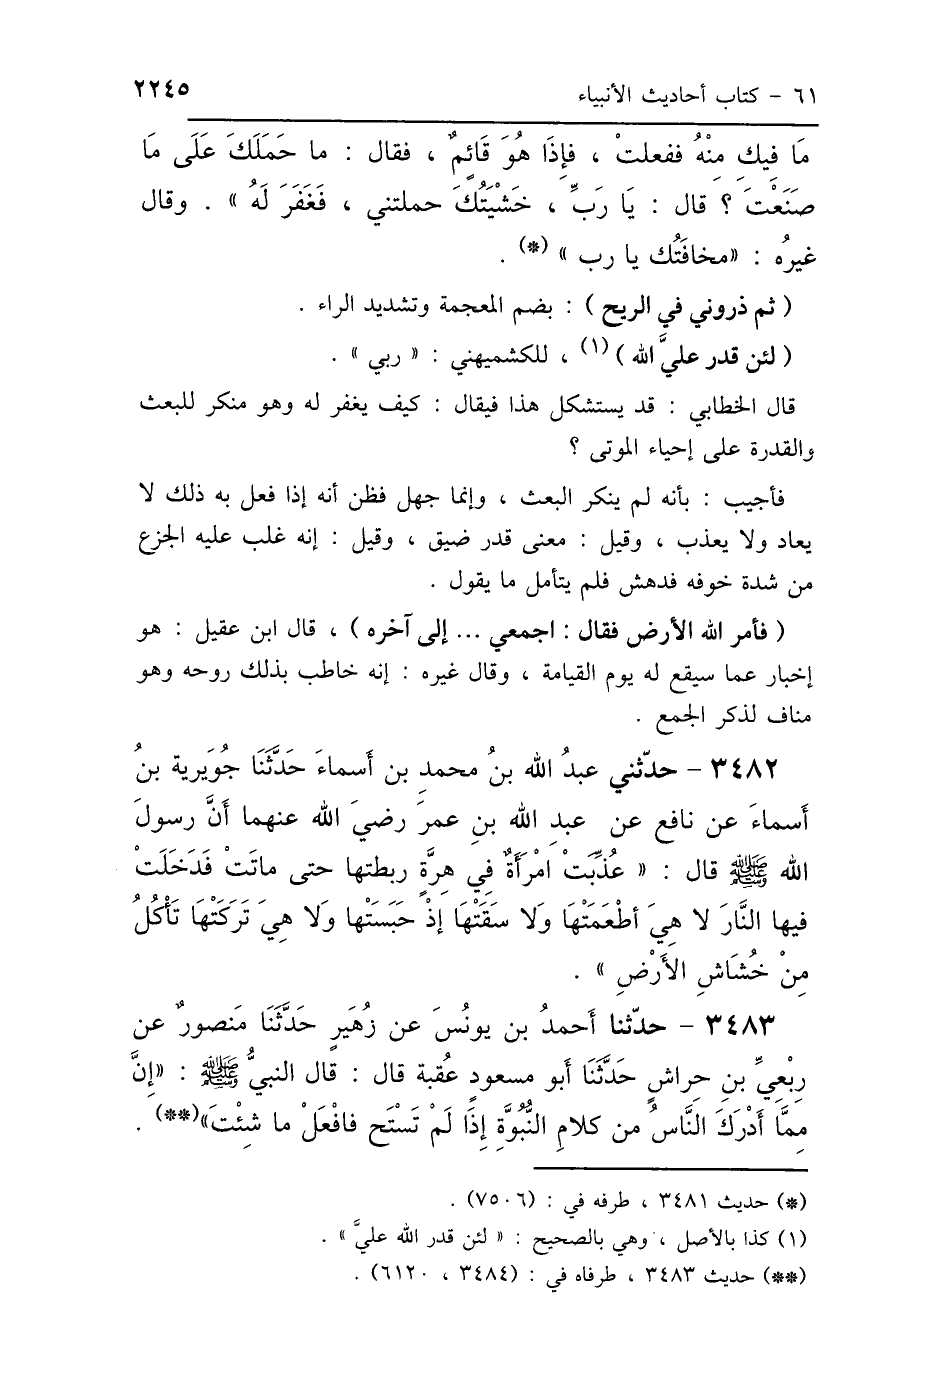 ٦١ - كتاب أحاديث الأنبياء ٢٢٤٥
مَا فِيكِ مِنْهُ ففعلتْ ، فإِذَا هُوَ قَائِمٌ ، فقال : ما حَمَلَكَ عَلَى مَا
صَنَعْتَ ؟ قال : يَا رَبِّ ، خَشْيَتُكَ حملتني ، فَغَفَرَ لَهُ » . وقال
غيرُه : «مخافَتُك يا رب » (*) .
( ثم ذروني في الريح ) : بضم المعجمة وتشديد الراء .
( لئن قدر عليَّ الله )(١) ، للكشميهني : « ربي » .
قال الخطابي : قد يستشكل هذا فيقال : كيف يغفر له وهو منكر للبعث
والقدرة على إحياء الموتى ؟
فأجيب : بأنه لم ينكر البعث ، وإنما جهل فظن أنه إذا فعل به ذلك لا
يعاد ولا يعذب ، وقيل : معنى قدر ضيق ، وقيل : إنه غلب عليه الجزع
من شدة خوفه فدهش فلم يتأمل ما يقول .
( فأمر الله الأرض فقال : اجمعي ... إلى آخره ) ، قال ابن عقيل : هو
إخبار عما سيقع له يوم القيامة ، وقال غيره : إنه خاطب بذلك روحه وهو
مناف لذكر الجمع .
٣٤٨٢ - حدّثني عبدُ الله بنُ محمدِ بن أَسماءَ حَدَّثَنَا جُوَيرية بنُ
أَسماءَ عن نافع عن عبدِ الله بنِ عمرَ رضيَ الله عنهما أَنَّ رسولَ
الله ﷺ قال : « عُذِّبَتْ امْرَأَةٌ فِي هِرَّةٍ ربطتها حتى ماتَتْ فَدَخَلَتْ
فيها النَّارَ لا هِيَ أطْعَمَتْهَا وَلا سَقَتْهَا إذْ حَبَسَتْها وَلا هِيَ تَرَكَتْهَا تَأْكُلُ
مِنْ خُشَاشِ الأَرْضِ » .
٣٤٨٣ - حدّثنا أَحمدُ بن يونُسَ عن زُهَيرٍ حَدَّثَنَا مَنصورٌ عن
رِبْعِيِّ بنِ حِراشٍ حَدَّثَنَا أبو مسعودٍ عُقبة قال : قال النبيُّ ﷺ : «إِنَّ
مِمَّا أَدْرَكَ النَّاسُ من كلامِ النُّبُوَّةِ إِذَا لَمْ تَسْتَحِ فافْعَلْ ما شِئْتَ»(**) .
(*) حديث ٣٤٨١ ، طرفه في : (٧٥٠٦) .
(١) كذا بالأصل ، وهي بالصحيح : « لئن قدر الله عليَّ » .
(**) حديث ٣٤٨٣ ، طرفاه في : (٣٤٨٤ ، ٦١٢٠) .